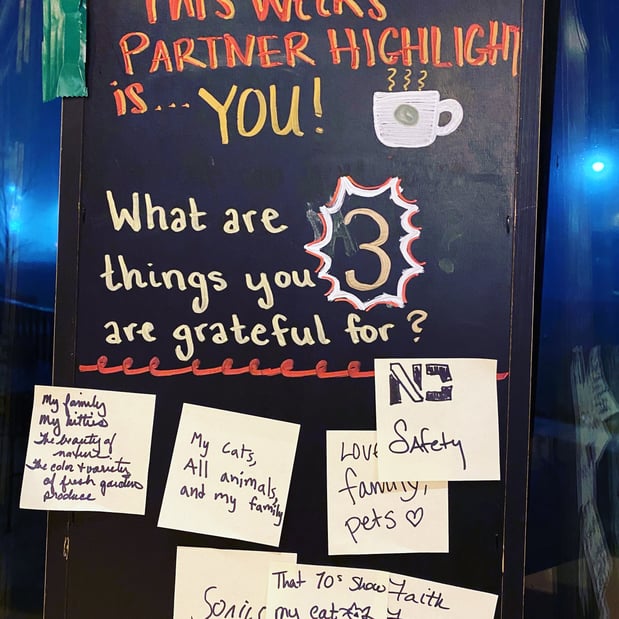 THIS WEEKS
PARTNER HIGHLIGHT
is... YOU!
What are 3
things you
are grateful for?
My family
My kitties
The beauty of
nature!
The color + variety
of fresh gardens
produce
My cats,
All animals,
and my family
LOVE
family,
pets ♡
Safety
That 70s Show
my cat
Faith